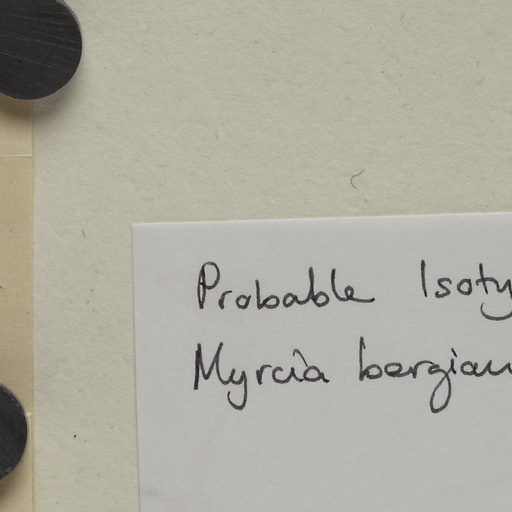 Probable Isoty
Myrcia bergian